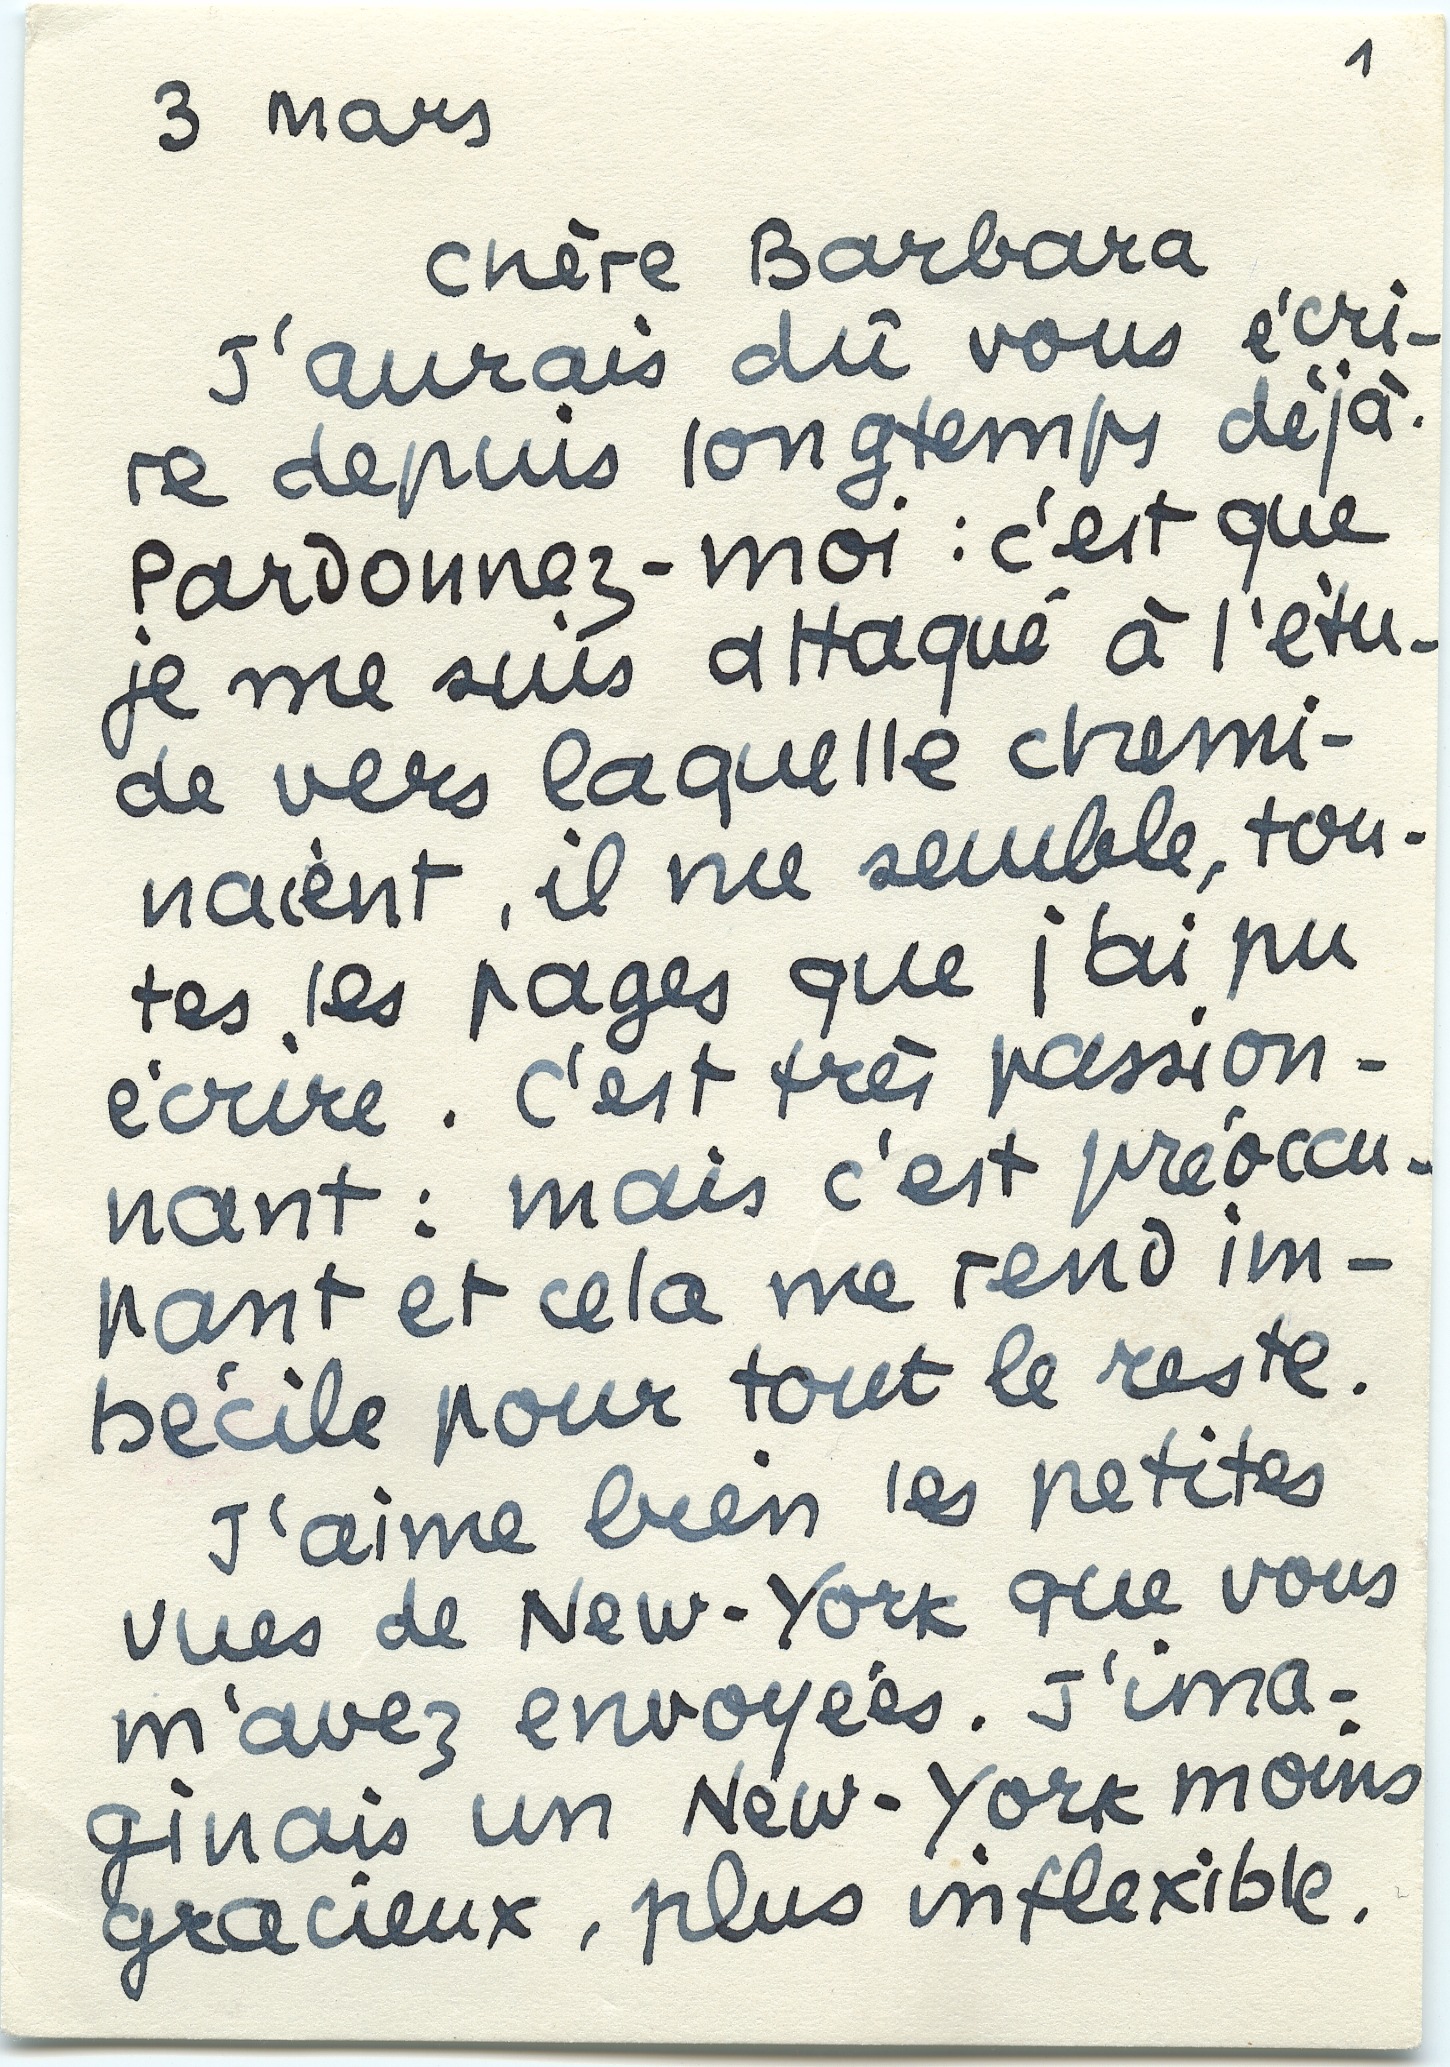 1
3 mars
Chère Barbara
J'aurais dû vous écri-
re depuis longtemps déjà.
Pardonnez-moi : c'est que
je me suis attaqué à l'étu-
de vers laquelle chemi-
naient, il me semble, tou-
tes les pages que j'ai pu
écrire. C'est très passion-
nant : mais c'est préoccu-
pant et cela me rend im-
bécile pour tout le reste.
J'aime bien les petites
vues de New-York que vous
m'avez envoyées. J'ima-
ginais un New-York moins
gracieux, plus inflexible.